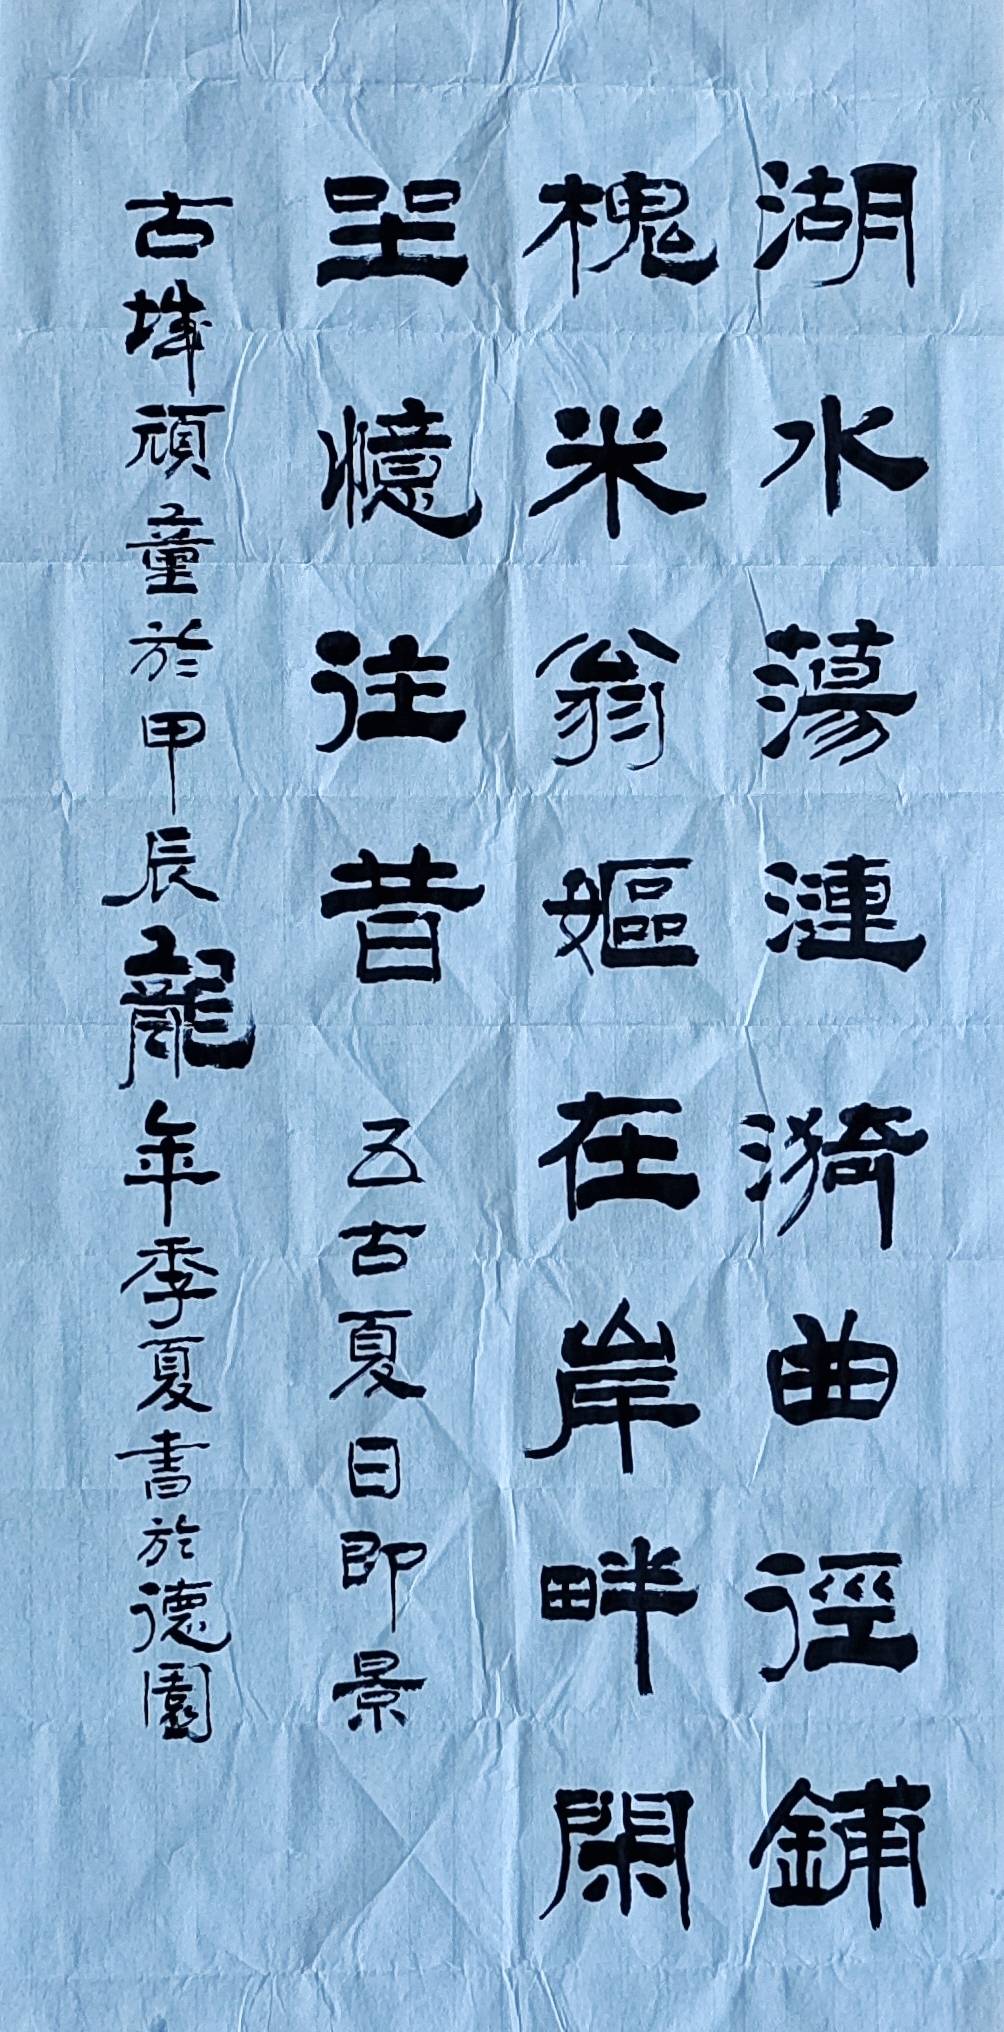 湖水蕩漣漪曲徑鋪
槐米翁嫗在岸畔閑
坐憶往昔 五古夏日即景
古城頑童於甲辰龍年季夏書於德園